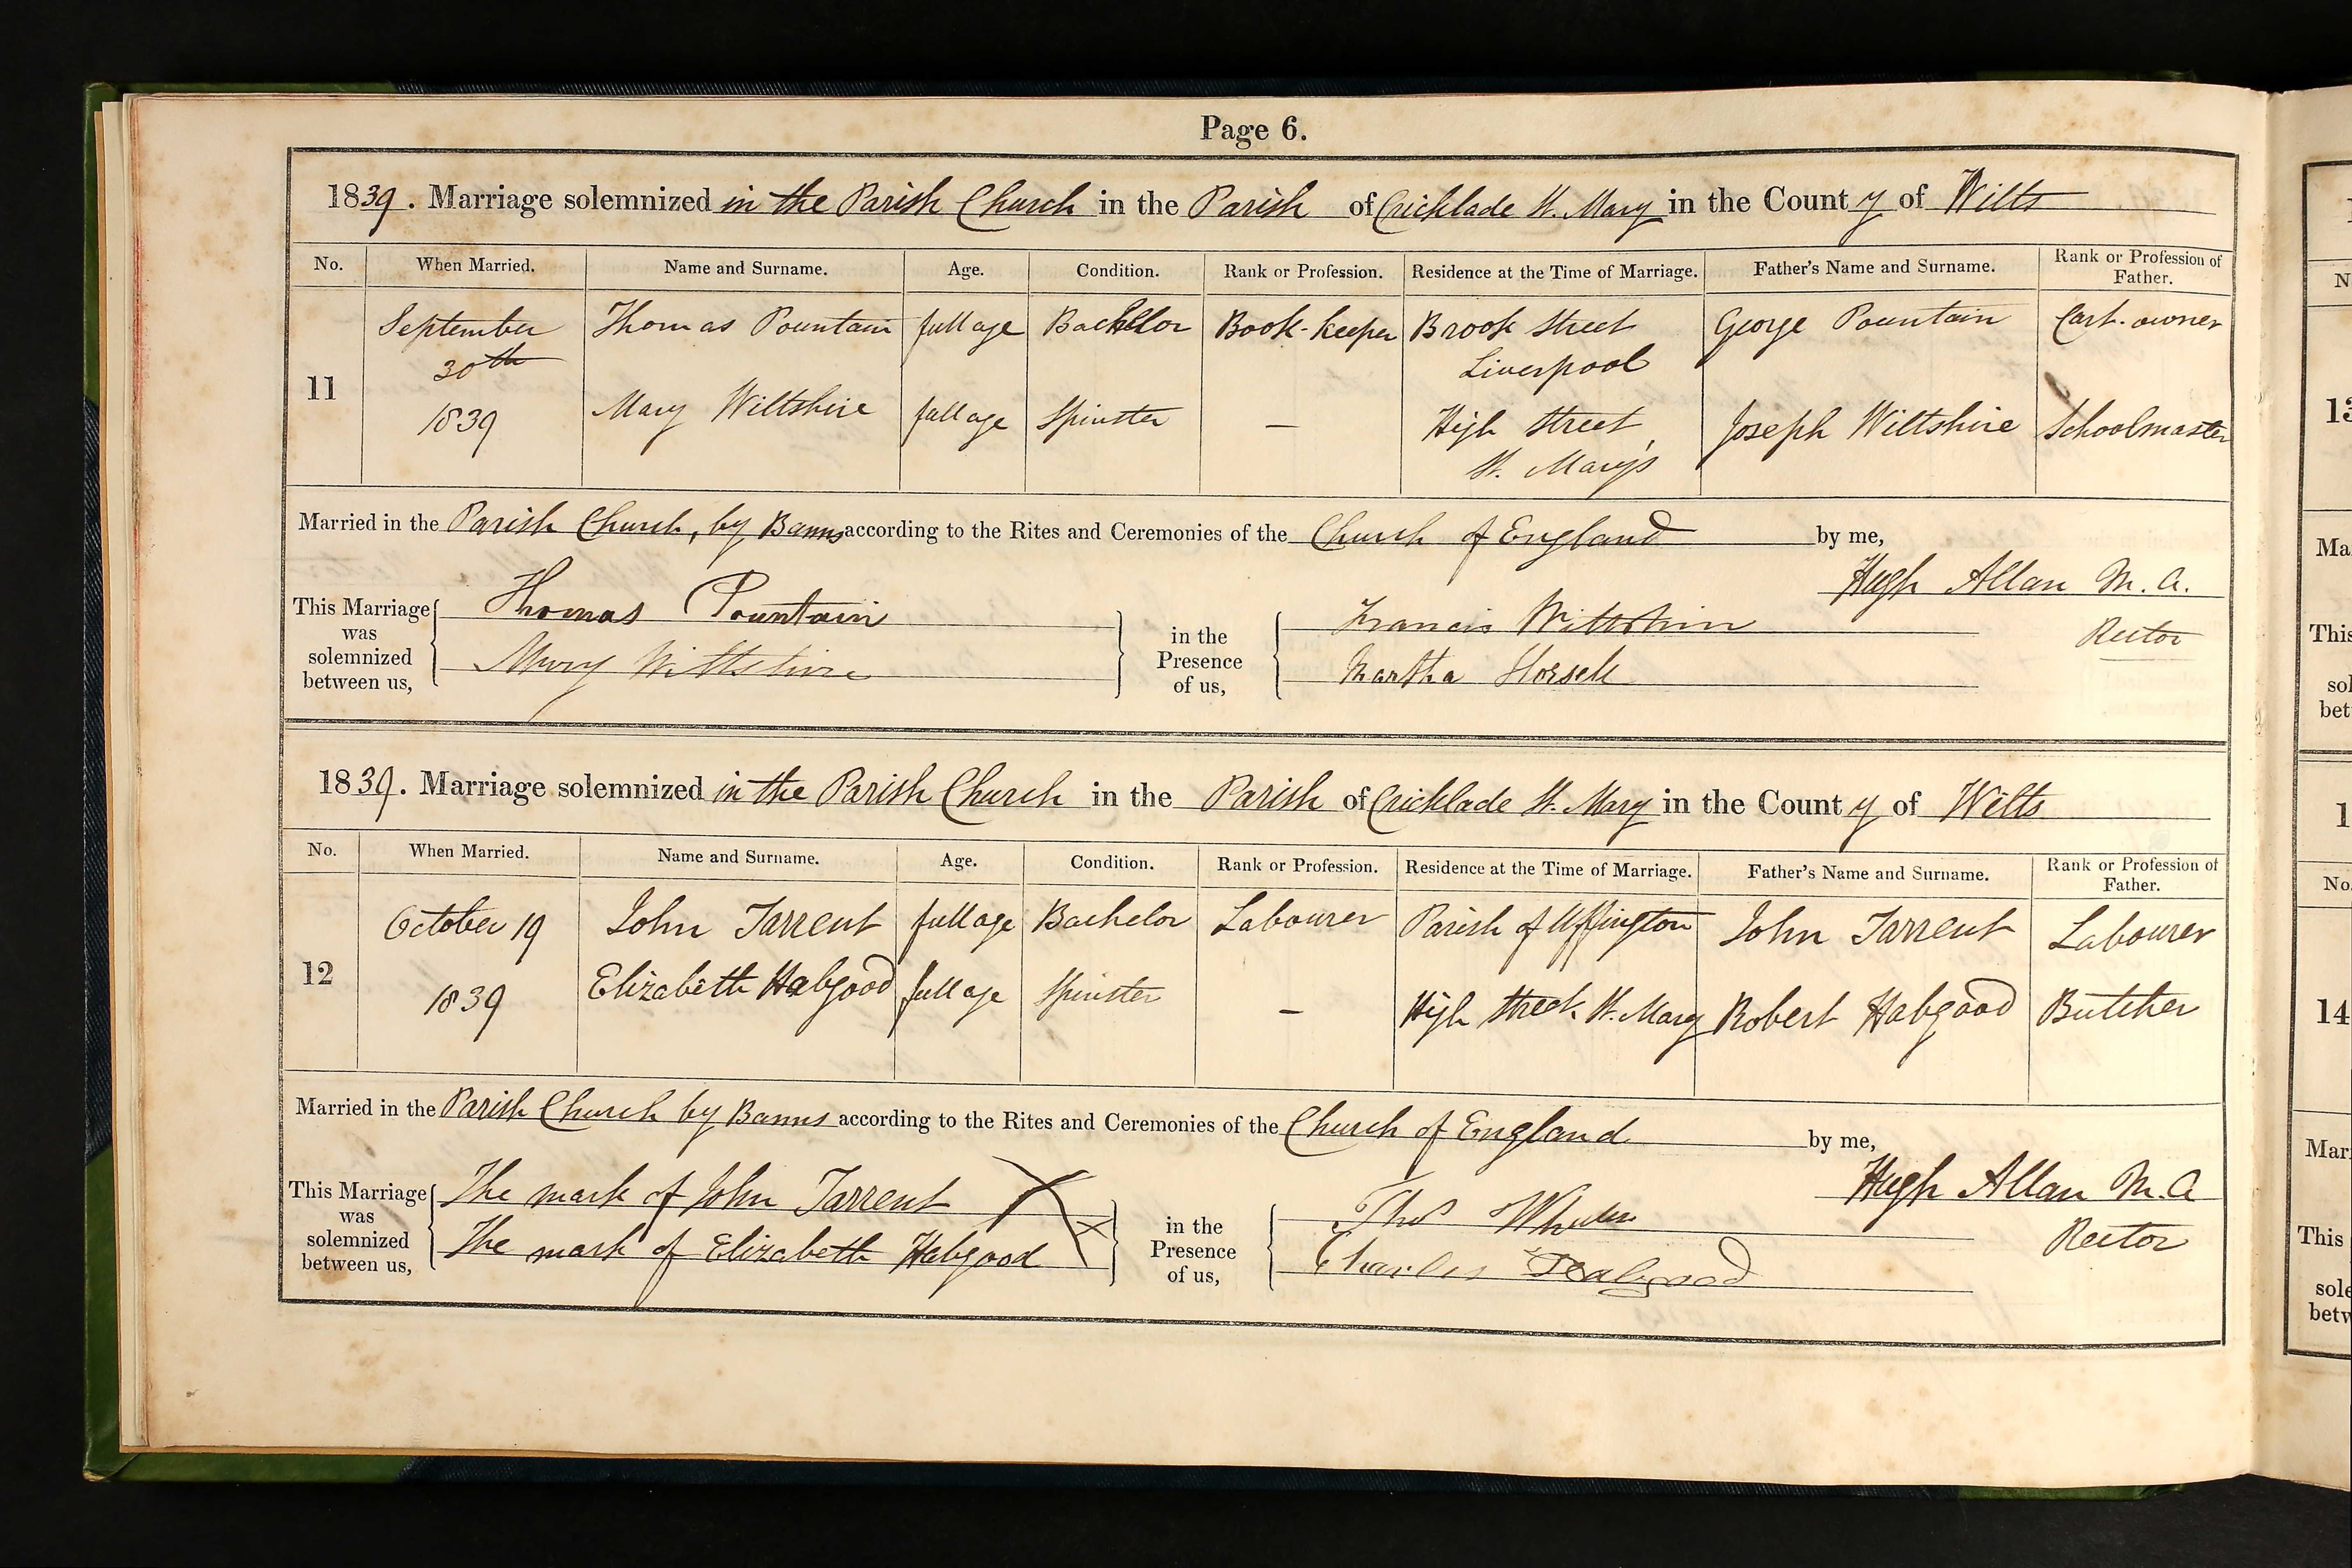 Page 6.
1839. Marriage solemnized in the Parish Church in the Parish of Cricklade St. Mary in the County of Wilts
No. When Married. Name and Surname. Age. Condition. Rank or Profession. Residence at the Time of Marriage. Father's Name and Surname. Rank or Profession of Father.
September Thomas Pountain full age Bachelor Book-keeper Brook Street George Pountain Cart-owner
30th Liverpool
11
1839 Mary Wiltshire full age Spinster – High Street, Joseph Wiltshire Schoolmaster
St. Mary's
Married in the Parish Church, by Banns according to the Rites and Ceremonies of the Church of England by me,
Hugh Allan M.A.
Rector
This Marriage was solemnized between us,
Thomas Pountain
Mary Wiltshire
in the Presence of us,
Francis Wiltshire
Martha Horsell
1839. Marriage solemnized in the Parish Church in the Parish of Cricklade St. Mary in the County of Wilts
No. When Married. Name and Surname. Age. Condition. Rank or Profession. Residence at the Time of Marriage. Father's Name and Surname. Rank or Profession of Father.
October 19 John Tarrent full age Bachelor Labourer Parish of Uffington John Tarrent Labourer
12
1839 Elizabeth Habgood full age Spinster – High Street St. Mary Robert Habgood Butcher
Married in the Parish Church by Banns according to the Rites and Ceremonies of the Church of England by me,
Hugh Allan M.A
Rector
This Marriage was solemnized between us,
The mark of John Tarrent X
The mark of Elizabeth Habgood X
in the Presence of us,
Thos
Charles Habgood
13
14